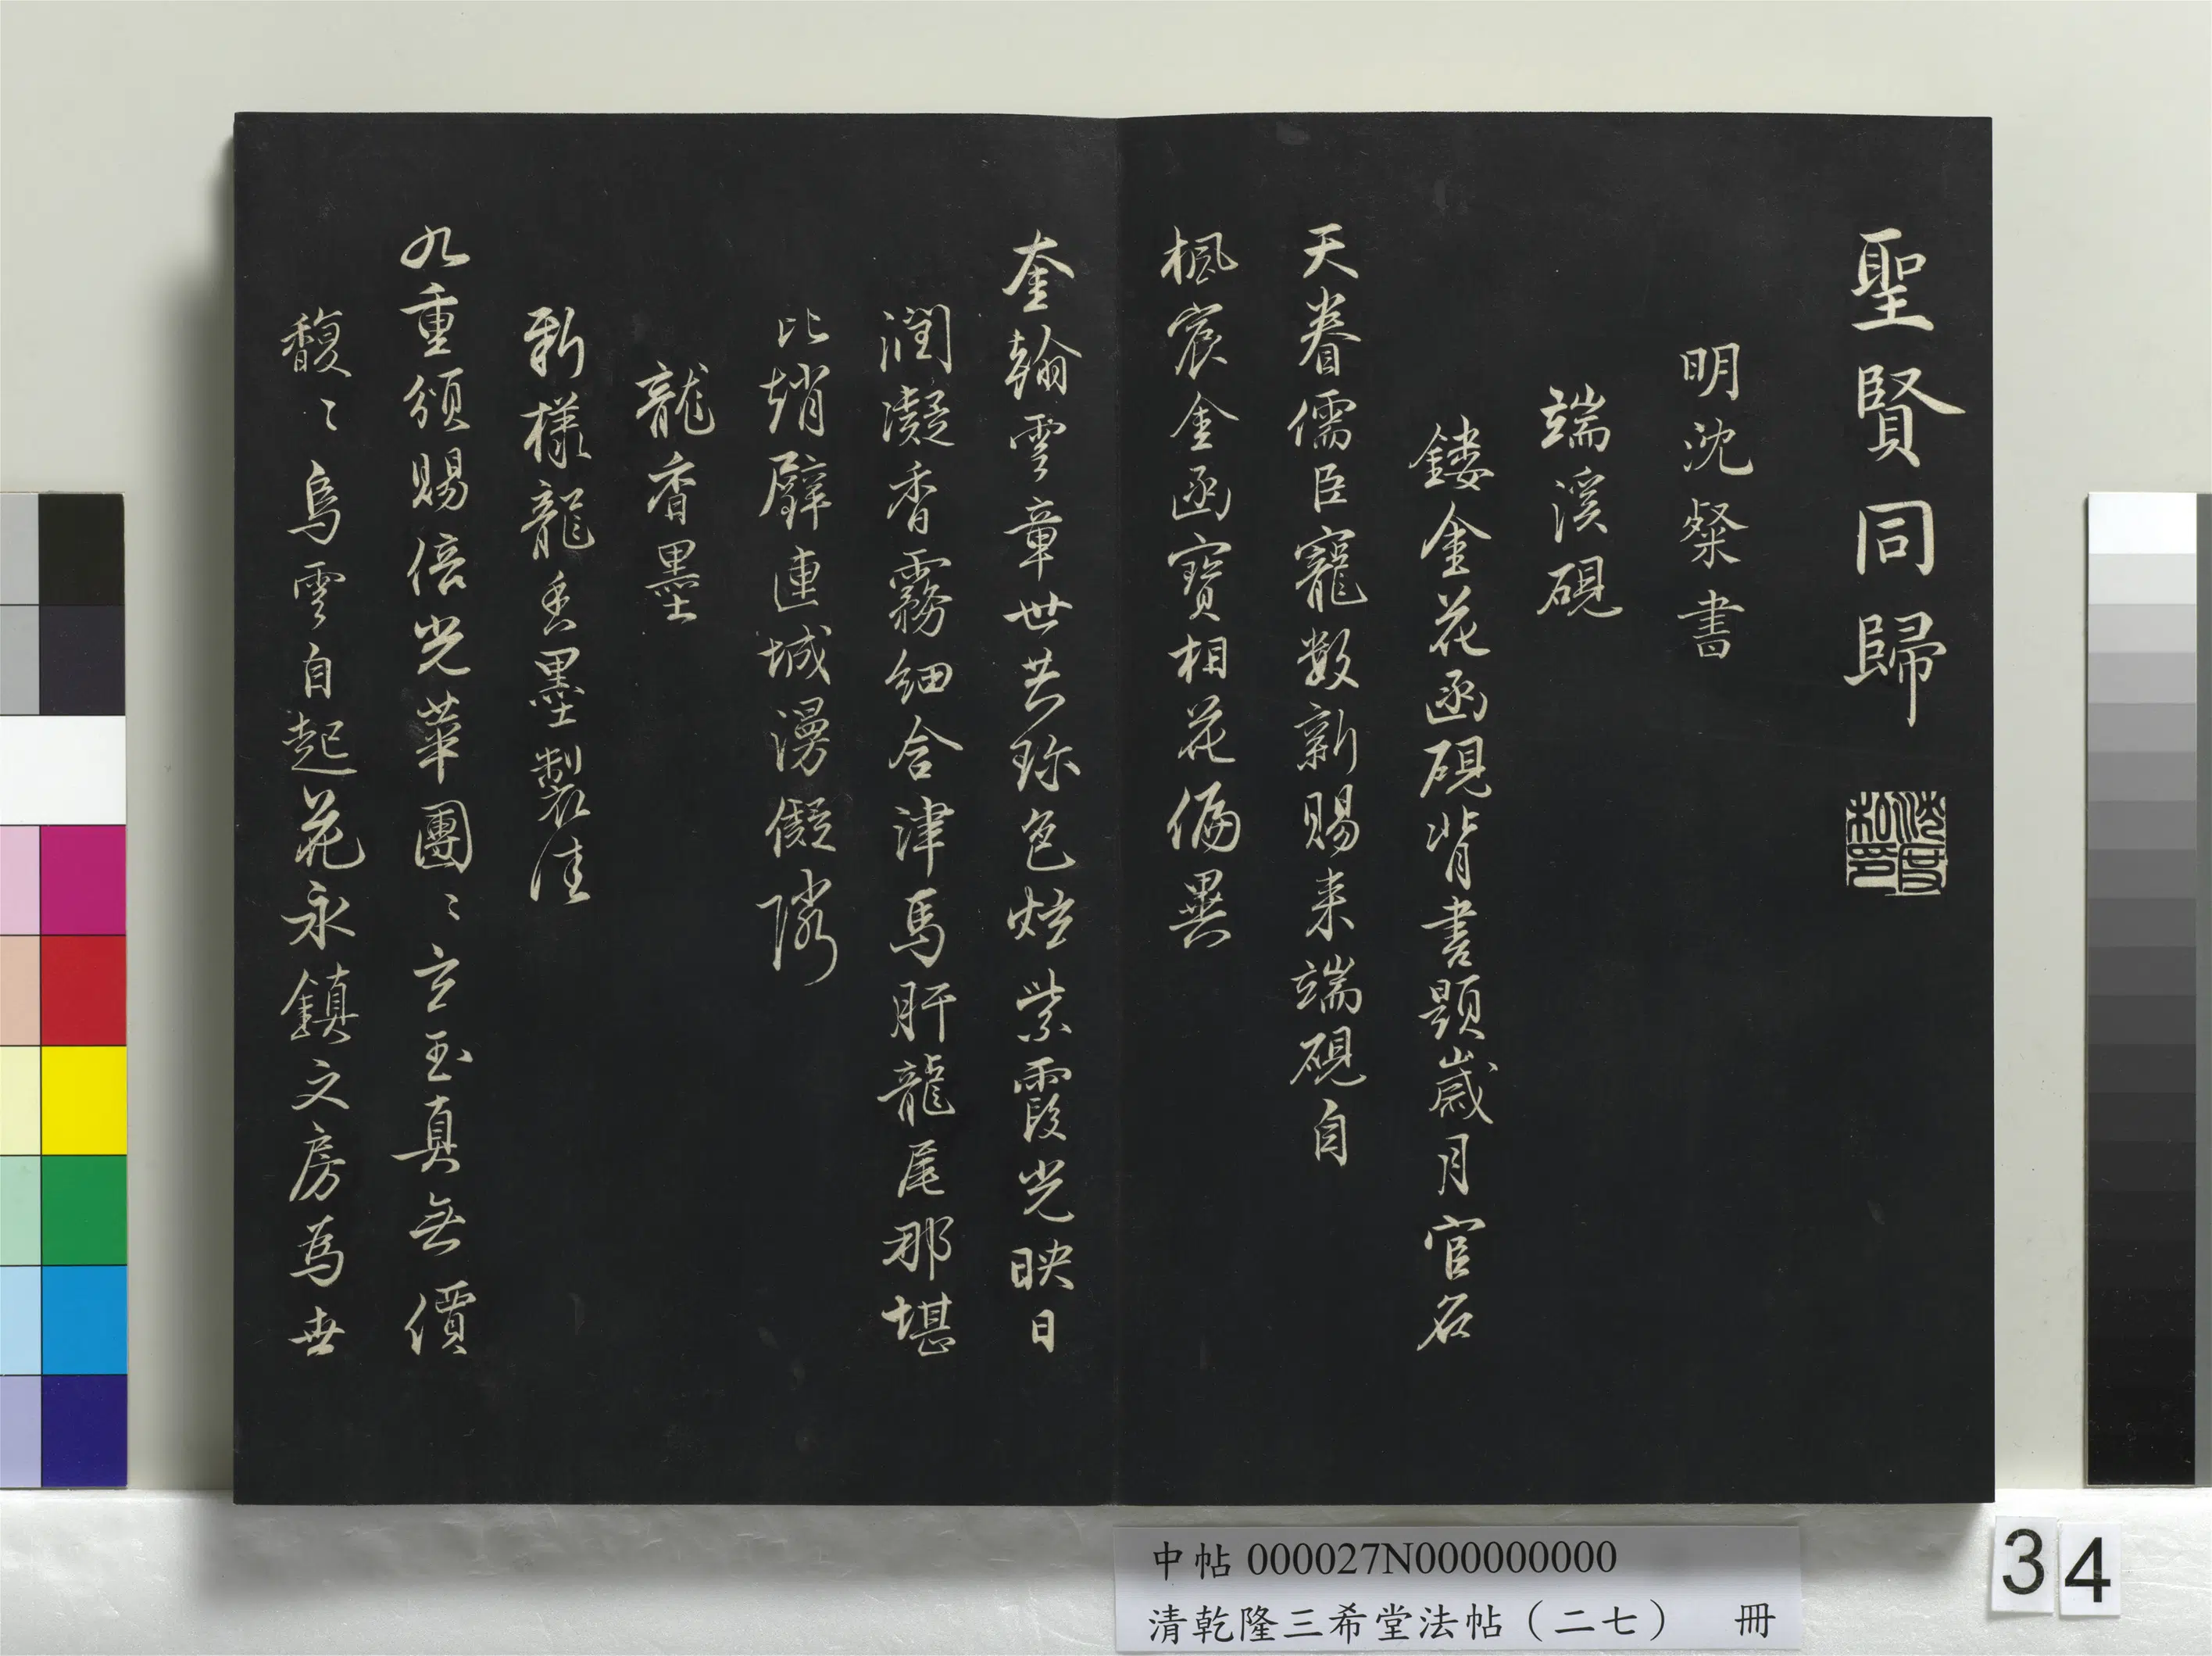 聖賢同歸
明沈粲書
端溪硯
鏤金花函硯背書題歲月官名
天眷儒臣寵數新賜来端硯自
楓宸金函寶相花偏異
奎翰雲章世共珎色炫紫霞光映日
潤凝香霧細含津馬肝龍尾那堪
比趙璧連城漫儗隣
龍香墨
新樣龍香墨製佳
九重頒賜倍光華團〻玄玉真無價
馥〻烏雲自起花永鎮文房為世
中帖 000027N000000000
清乾隆三希堂法帖（二七） 冊
34